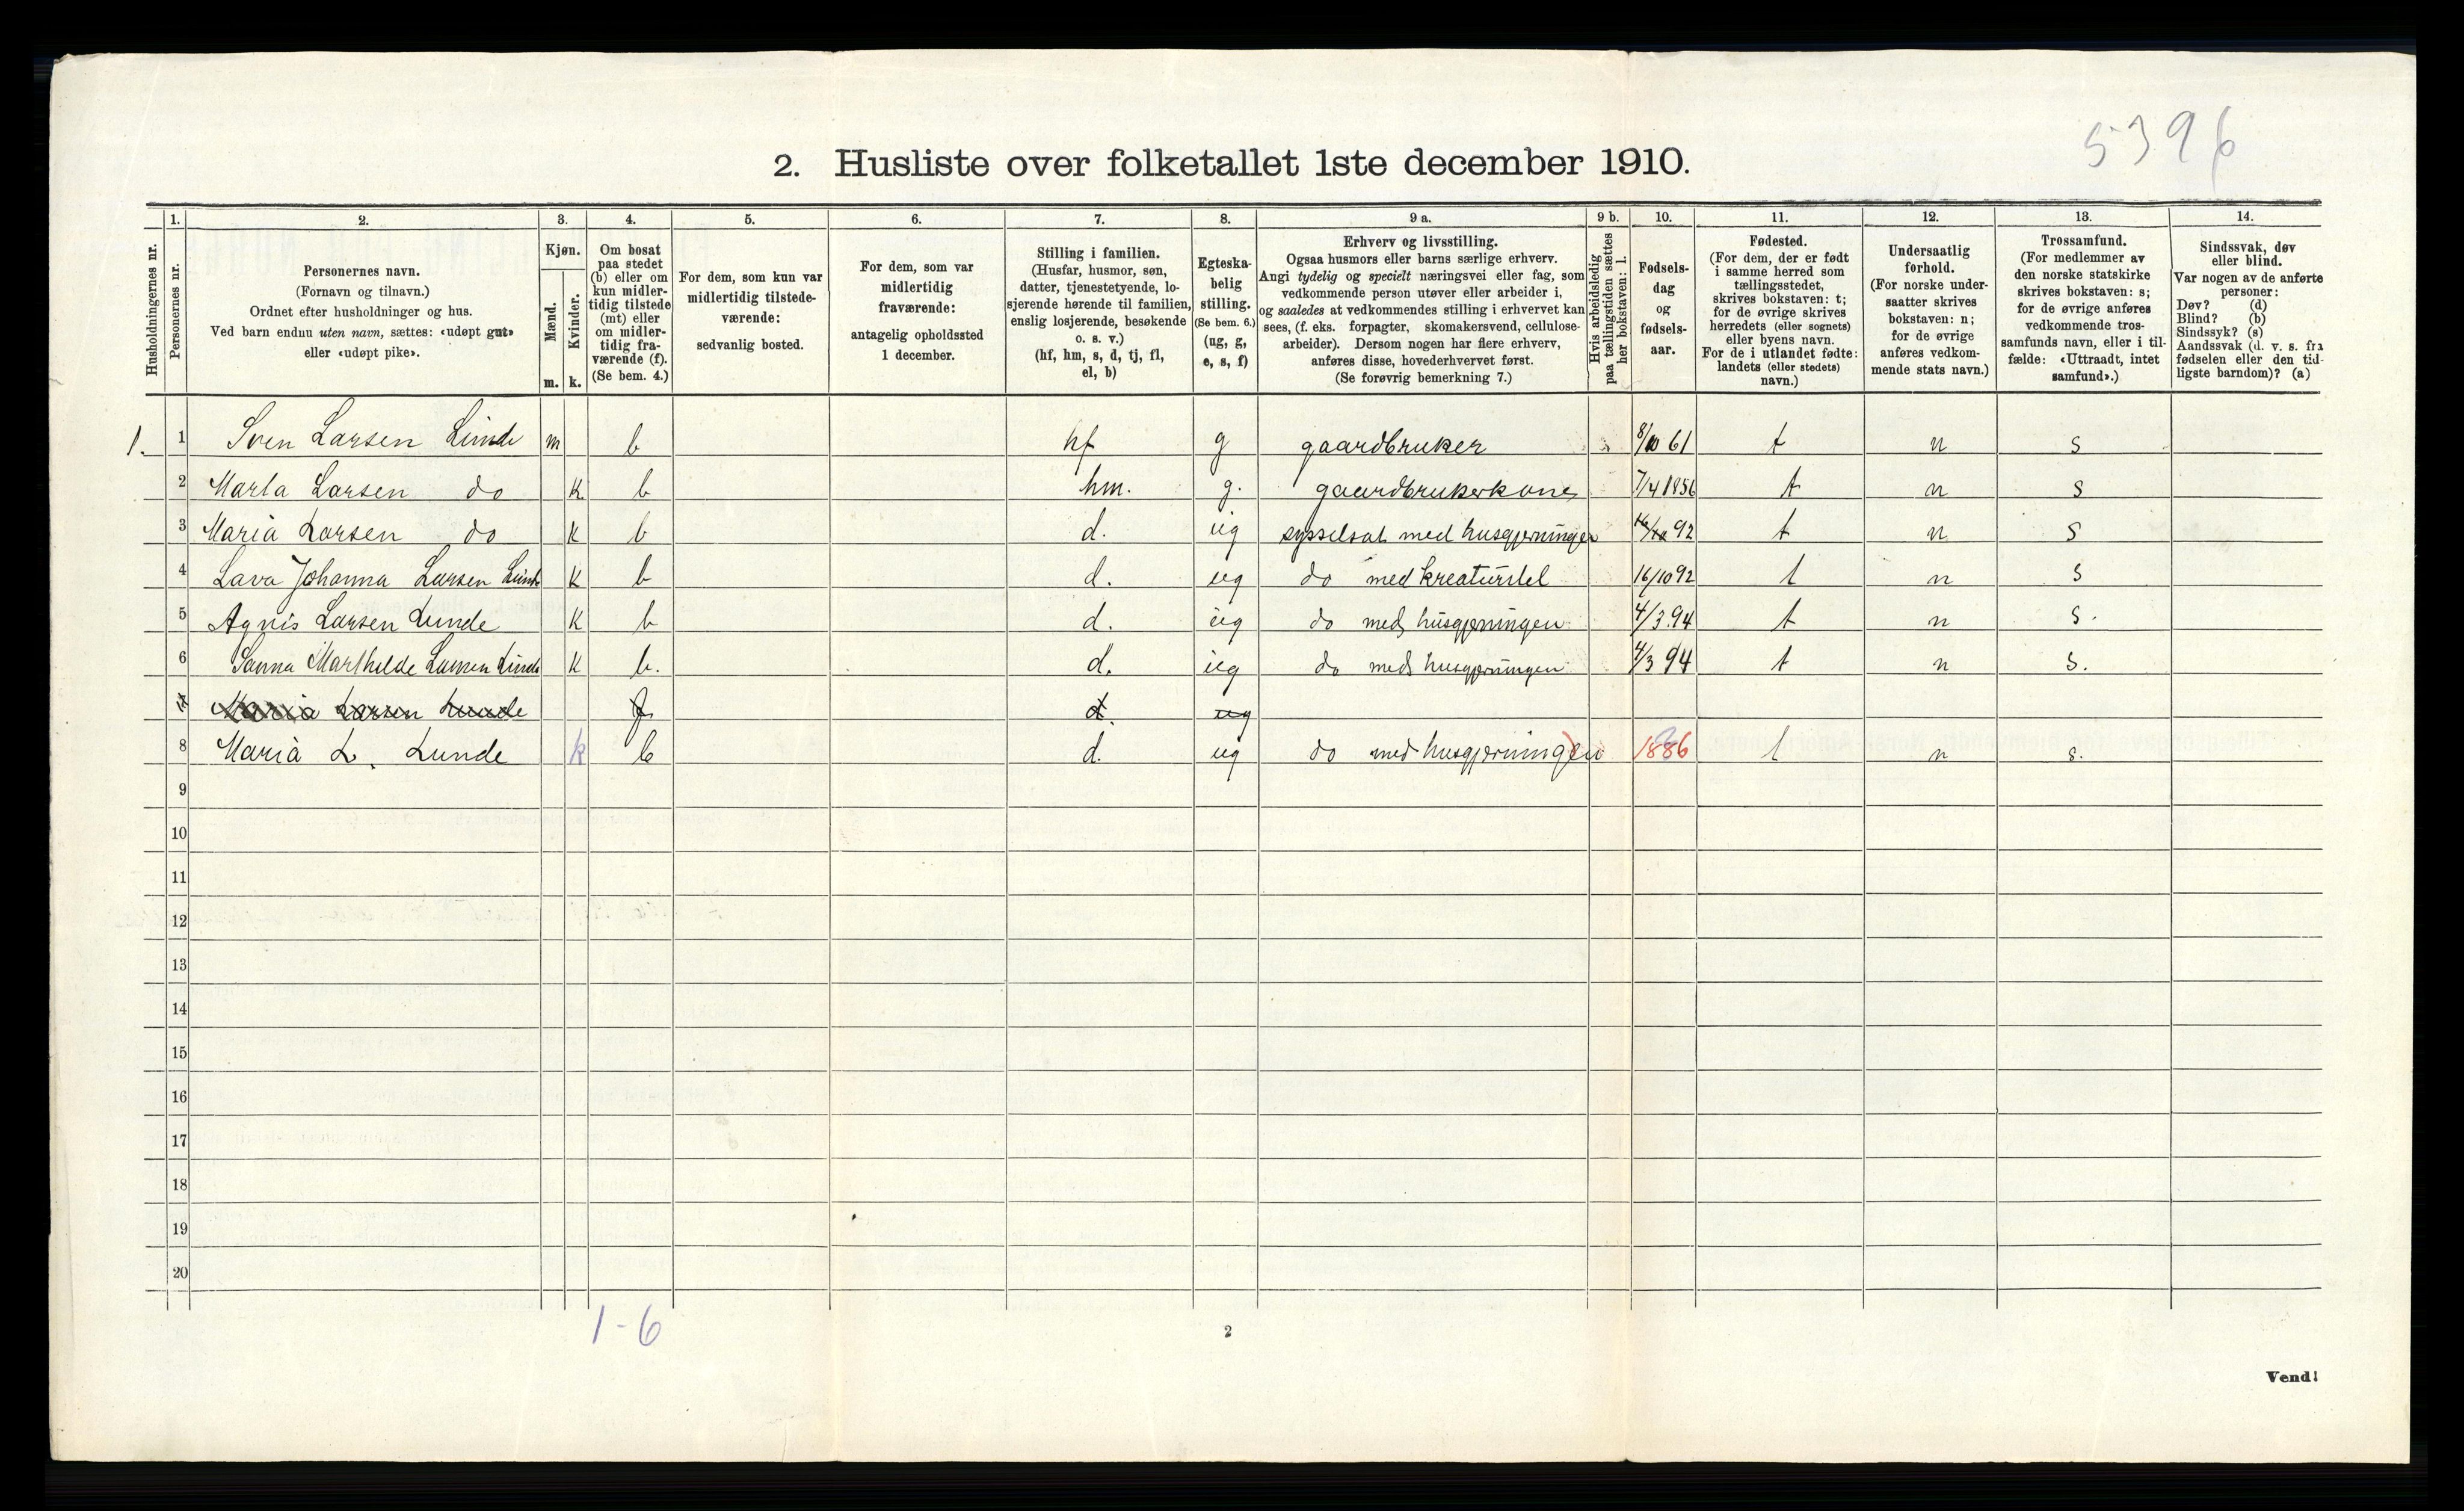 5396
2. Husliste over folketallet 1ste december 1910.
Husholdningernes nr.
1.
Personernes nr.
2.
Personernes navn.
(Fornavn og tilnavn.)
Ordnet efter husholdninger og hus.
Ved barn endnu uten navn, sættes: «udøpt gut»
eller «udøpt pike».
3.
Kjøn.
Mænd.
Kvinder.
m. k.
4.
Om bosat
paa stedet
(b) eller om
kun midler-
tidig tilstede
(mt) eller
om midler-
tidig fra-
værende (f).
(Se bem. 4.)
5.
For dem, som kun var
midlertidig tilstede-
værende:
sedvanlig bosted.
6.
For dem, som var
midlertidig
fraværende:
antagelig opholdssted
1 december.
7.
Stilling i familien.
(Husfar, husmor, søn,
datter, tjenestetyende, lo-
sjerende hørende til familien,
enslig losjerende, besøkende
o. s. v.)
(hf, hm, s, d, tj, fl,
el, b)
8.
Egteska-
belig
stilling.
(Se bem. 6.)
(ug, g,
e, s, f)
9 a.
Erhverv og livsstilling.
Ogsaa husmors eller barns særlige erhverv.
Angi tydelig og specielt næringsvei eller fag, som
vedkommende person utøver eller arbeider i,
og saaledes at vedkommendes stilling i erhvervet kan
sees, (f. eks. forpagter, skomakersvend, cellulose-
arbeider). Dersom nogen har flere erhverv,
anføres disse, hovederhvervet først.
(Se forøvrig bemerkning 7.)
9 b.
Hvis arbeidsledig
paa tællingstiden sættes
her bokstaven: l.
10.
Fødsels-
dag
og
fødsels-
aar.
11.
Fødested.
(For dem, der er født
i samme herred som
tællingsstedet,
skrives bokstaven: t;
for de øvrige skrives
herredets (eller sognets)
eller byens navn.
For de i utlandet fødte:
landets (eller stedets)
navn.)
12.
Undersaatlig
forhold.
(For norske under-
saatter skrives
bokstaven: n;
for de øvrige
anføres vedkom-
mende stats navn.)
13.
Trossamfund.
(For medlemmer av
den norske statskirke
skrives bokstaven: s;
for de øvrige anføres
vedkommende tros-
samfunds navn, eller i til-
fælde: «Uttraadt, intet
samfund».)
14.
Sindssvak, døv
eller blind.
Var nogen av de anførte
personer:
Døv? (d)
Blind? (b)
Sindssyk? (s)
Aandssvak (d. v. s. fra
fødselen eller den tid-
ligste barndom)? (a)
1. 1 Sven Larsen Lunde m b hf g gaardbruker 8/10 61 t n s
2 Marta Larsen do k b hm. g. gaardbrukerkone 7/4 1856 t n s
3 Maria Larsen do k b d. ug sysselsat med husgjerningen 92 t n s
4 Lava Johanna Larsen Lunde k b d. ug do med kreaturstel 16/10 92 t n s
5 Agnis Larsen Lunde k b d. ug do med husgjerningen 4/3.94 t n s.
6 Sanna Marthilde Larsen Lunde k b. d. ug do med husgjerningen 4/3 94 t n s.
Maria Larsen Lunde f d. ug
8 Maria L. Lunde k b d. ug do med husgjerningen 1886 t n s.
9
10
11
12
13
14
15
16
17
18
19
20
1-6
2
Vend!